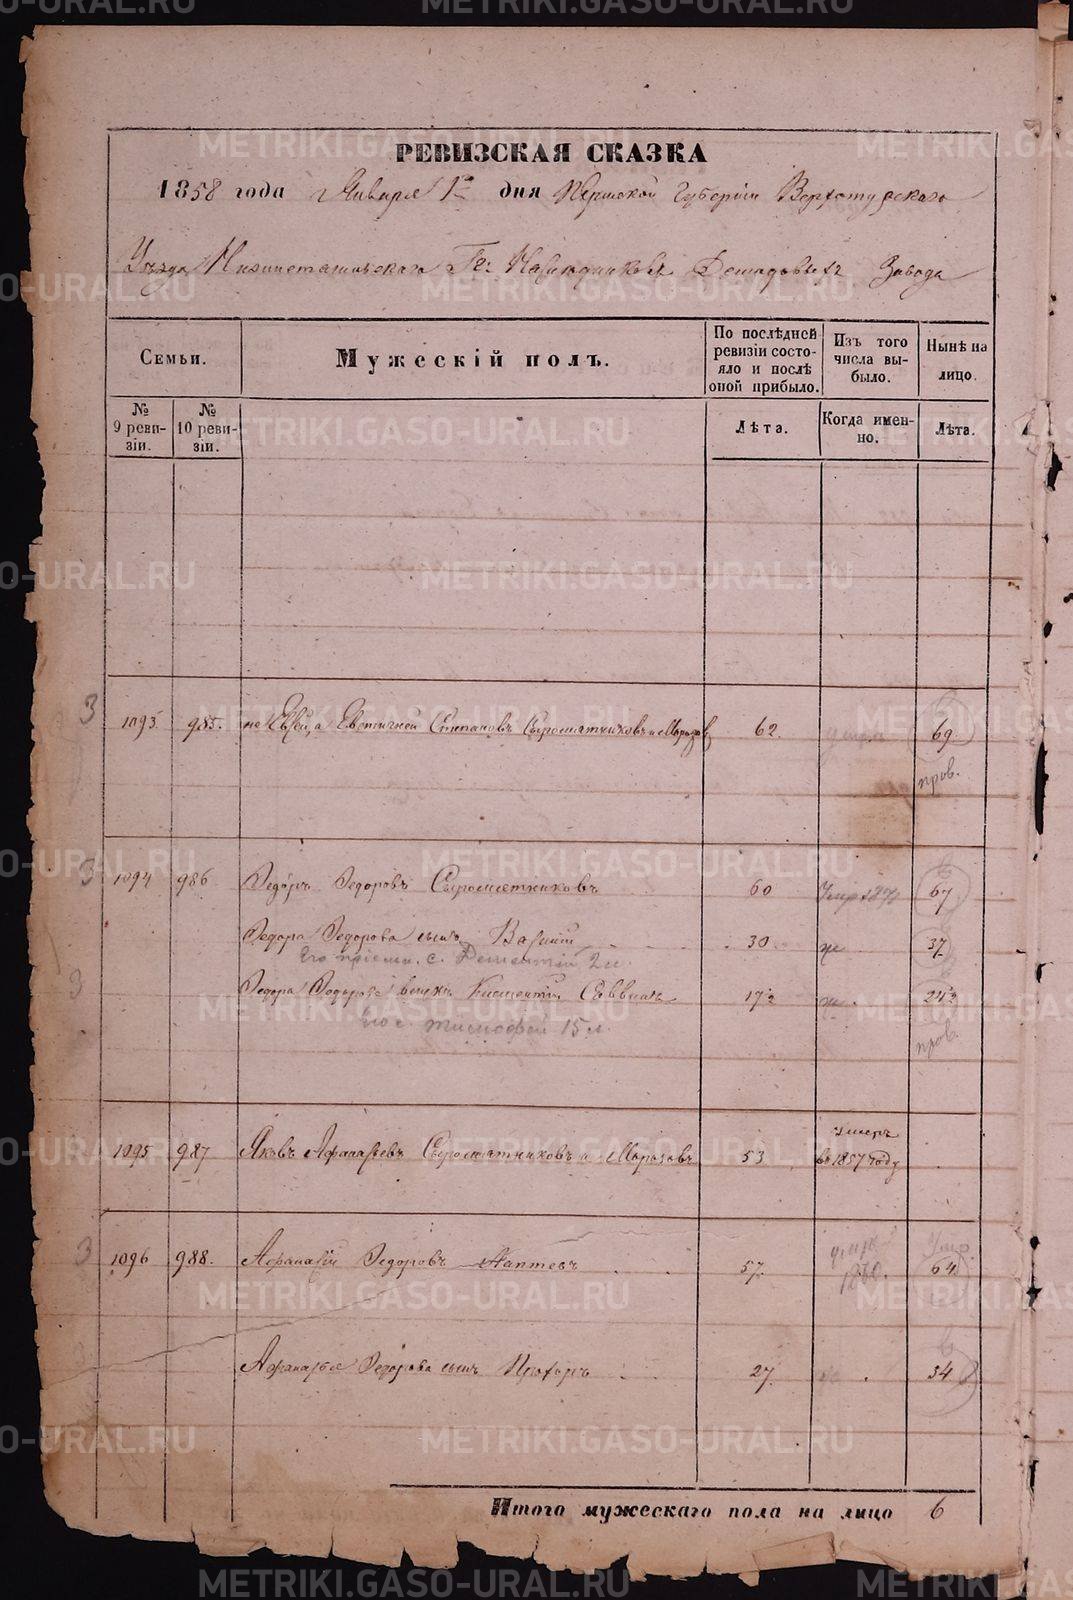 METRIKI.GASO-URAL.RU
РЕВИЗСКАЯ СКАЗКА
1858 года Января 1го дня Пермской Губернiи Верхотурскаго
Уѣзда Нижнетагильскаго Гг: Наслѣдниковъ Демидовыхъ Завода
Семьи.
Мужескiй полъ.
По послѣдней ревизiи состояло и послѣ оной прибыло.
Изъ того числа выбыло.
Нынѣ на лицо.
№ 9 ревизiи.
№ 10 ревизiи.
Лѣта.
Когда именно.
Лѣта.
3 1093 985. не Евсей, а Евстигней Степановъ Сыромятниковъ и Морозовъ 62. 69.
пров.
3 1094 986 Ѳедоръ Ѳедоровъ Сыромятниковъ 60 Умр 187 67
Ѳедора Ѳедорова сынъ Василiй 30 37
Его прiемы. с. Дементiй 2 л.
3 Ѳедора Ѳедорова Саввинъ 17½ 24½
Его с. Тимофей 15 л.
пров.
1095 987 Яковъ Афанасьевъ Сыромятниковъ и Морозовъ 53 Умеръ в 1857 году
3 1096 988. Афанасiй Ѳедоровъ Лаптевъ 57. умр 1860. Умр. 64
Афанасья Ѳедорова сынъ Прохоръ 27 34
Итого мужескаго пола на лицо 6